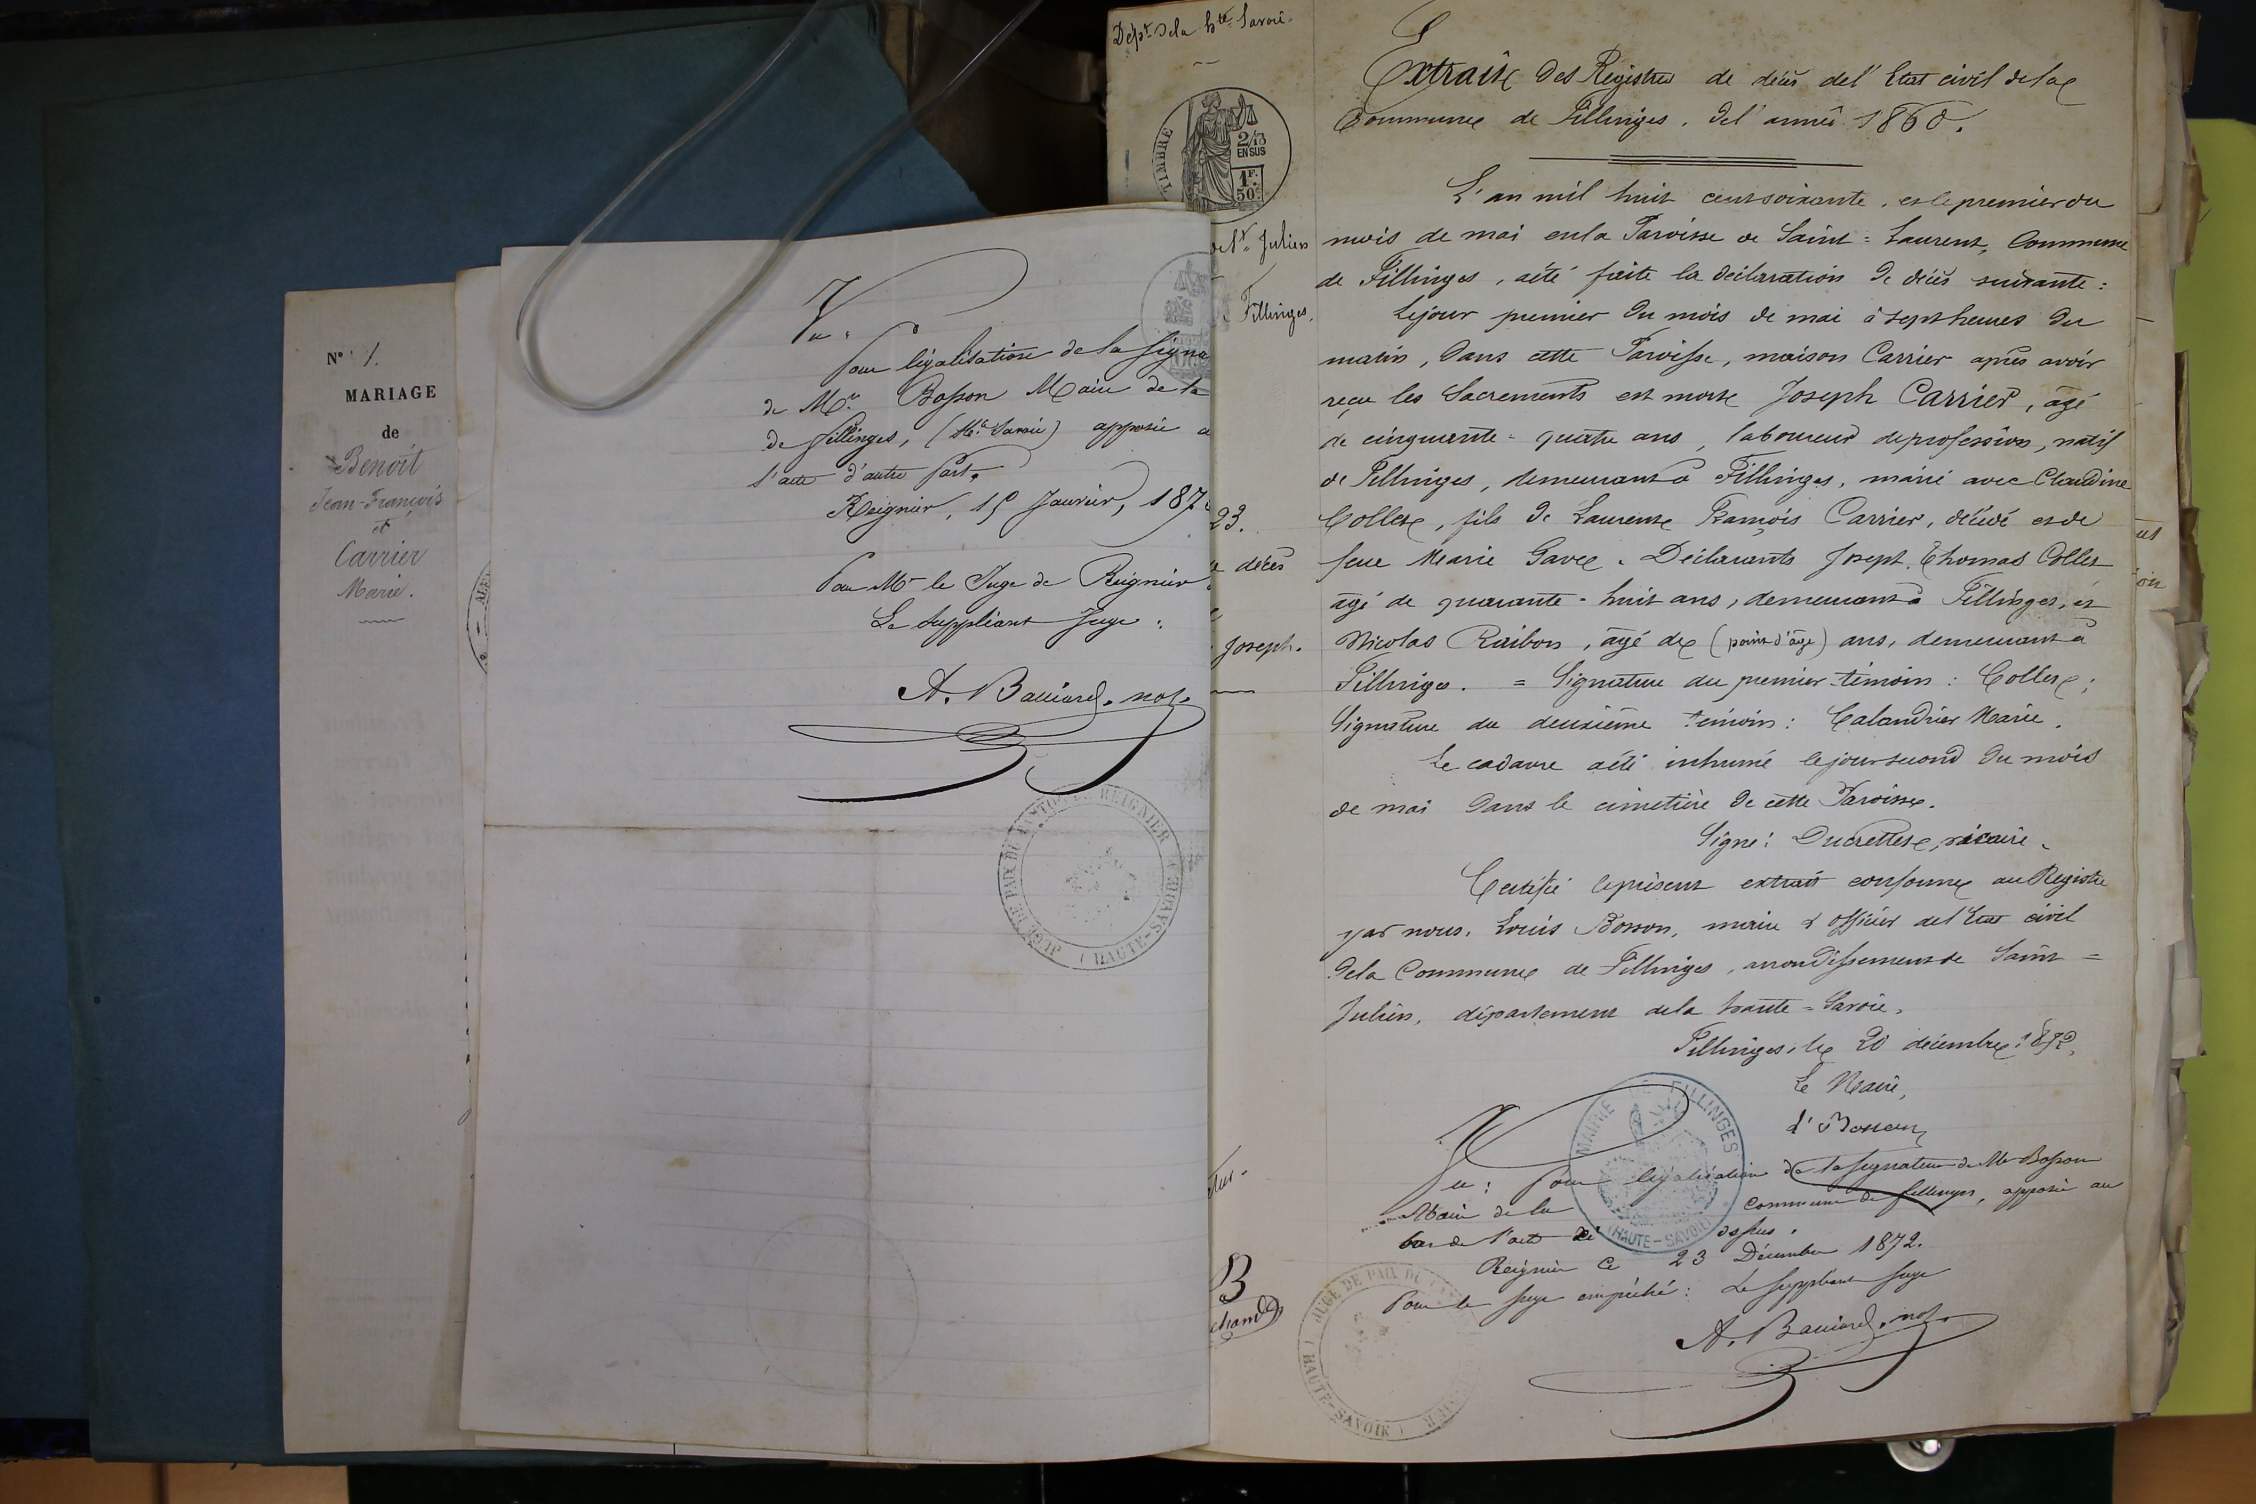 N° 1.
MARIAGE
de
Benoît
Jean-François
et
Carrier
Marie.
Vu.
Pour légalisation de la signa
de Mr. Bosson Maire de la
de fillinges, (Hte Savoie) apposée a
l'acte d'autre part.
Reignier, 15 Janvier, 187
Pour Mr le Juge de Reignier
Le Suppléant Juge :
A. Balliard. not.
JUGE DE PAIX DU CANTON DE REIGNIER
(HAUTE-SAVOIE)
Dépt. de la hte. Savoie.
TIMBRE
2/10
EN SUS
1F.
50c.
de St. Julien
Fillinges.
23.
décès
Joseph.
Extrait des Registres de décès de l'Etat civil de la
Commune de Fillinges. de l'année 1860.
L'an mil huit cent soixante. et le premier du
mois de mai en la Paroisse de Saint=Laurent, Commune
de Fillinges, a été faite la déclaration de décès suivante :
Le jour premier du mois de mai à sept heures du
matin, dans cette Paroisse, maison Carrier après avoir
reçu les Sacrements est mort Joseph Carrier, âgé
de cinquante-quatre ans, laboureur de profession, natif
de Fillinges, demeurant à Fillinges, marié avec Claudine
Collet, fils de Laurent François Carrier, décédé et de
feue Marie Gavel. Déclarants Joseph Thomas Collet
âgé de quarante-huit ans, demeurant à Fillinges, et
Nicolas Raibon, âgé de (point d'âge) ans, demeurant à
Fillinges. = Signature du premier témoin : Collet ;
Signature du deuxième témoin : Calandrier Marie.
Le cadavre a été inhumé le jour second du mois
de mai dans le cimetière de cette Paroisse.
Signé : Ducrettet, vicaire.
Certifié le présent extrait conforme au Registre
par nous, Louis Bosson, maire & officier de l'Etat civil
de la Commune de Fillinges, arrondissement de Saint=
Julien, département de la haute=Savoie.
Fillinges, le 20 décembre 1872.
Le Maire,
Ls Bosson
MAIRIE DE FILLINGES
(HAUTE-SAVOIE)
Vu : Pour légalisation de la signature de Mr Bosson
Maire de la commune de fillinges, apposée au
bas de l'acte ci dessus.
Reignier ce 23 Décembre 1872.
Pour le Juge empêché : Le Suppléant Juge
A. Balliard. not.
JUGE DE PAIX DU
(HAUTE-SAVOIE)